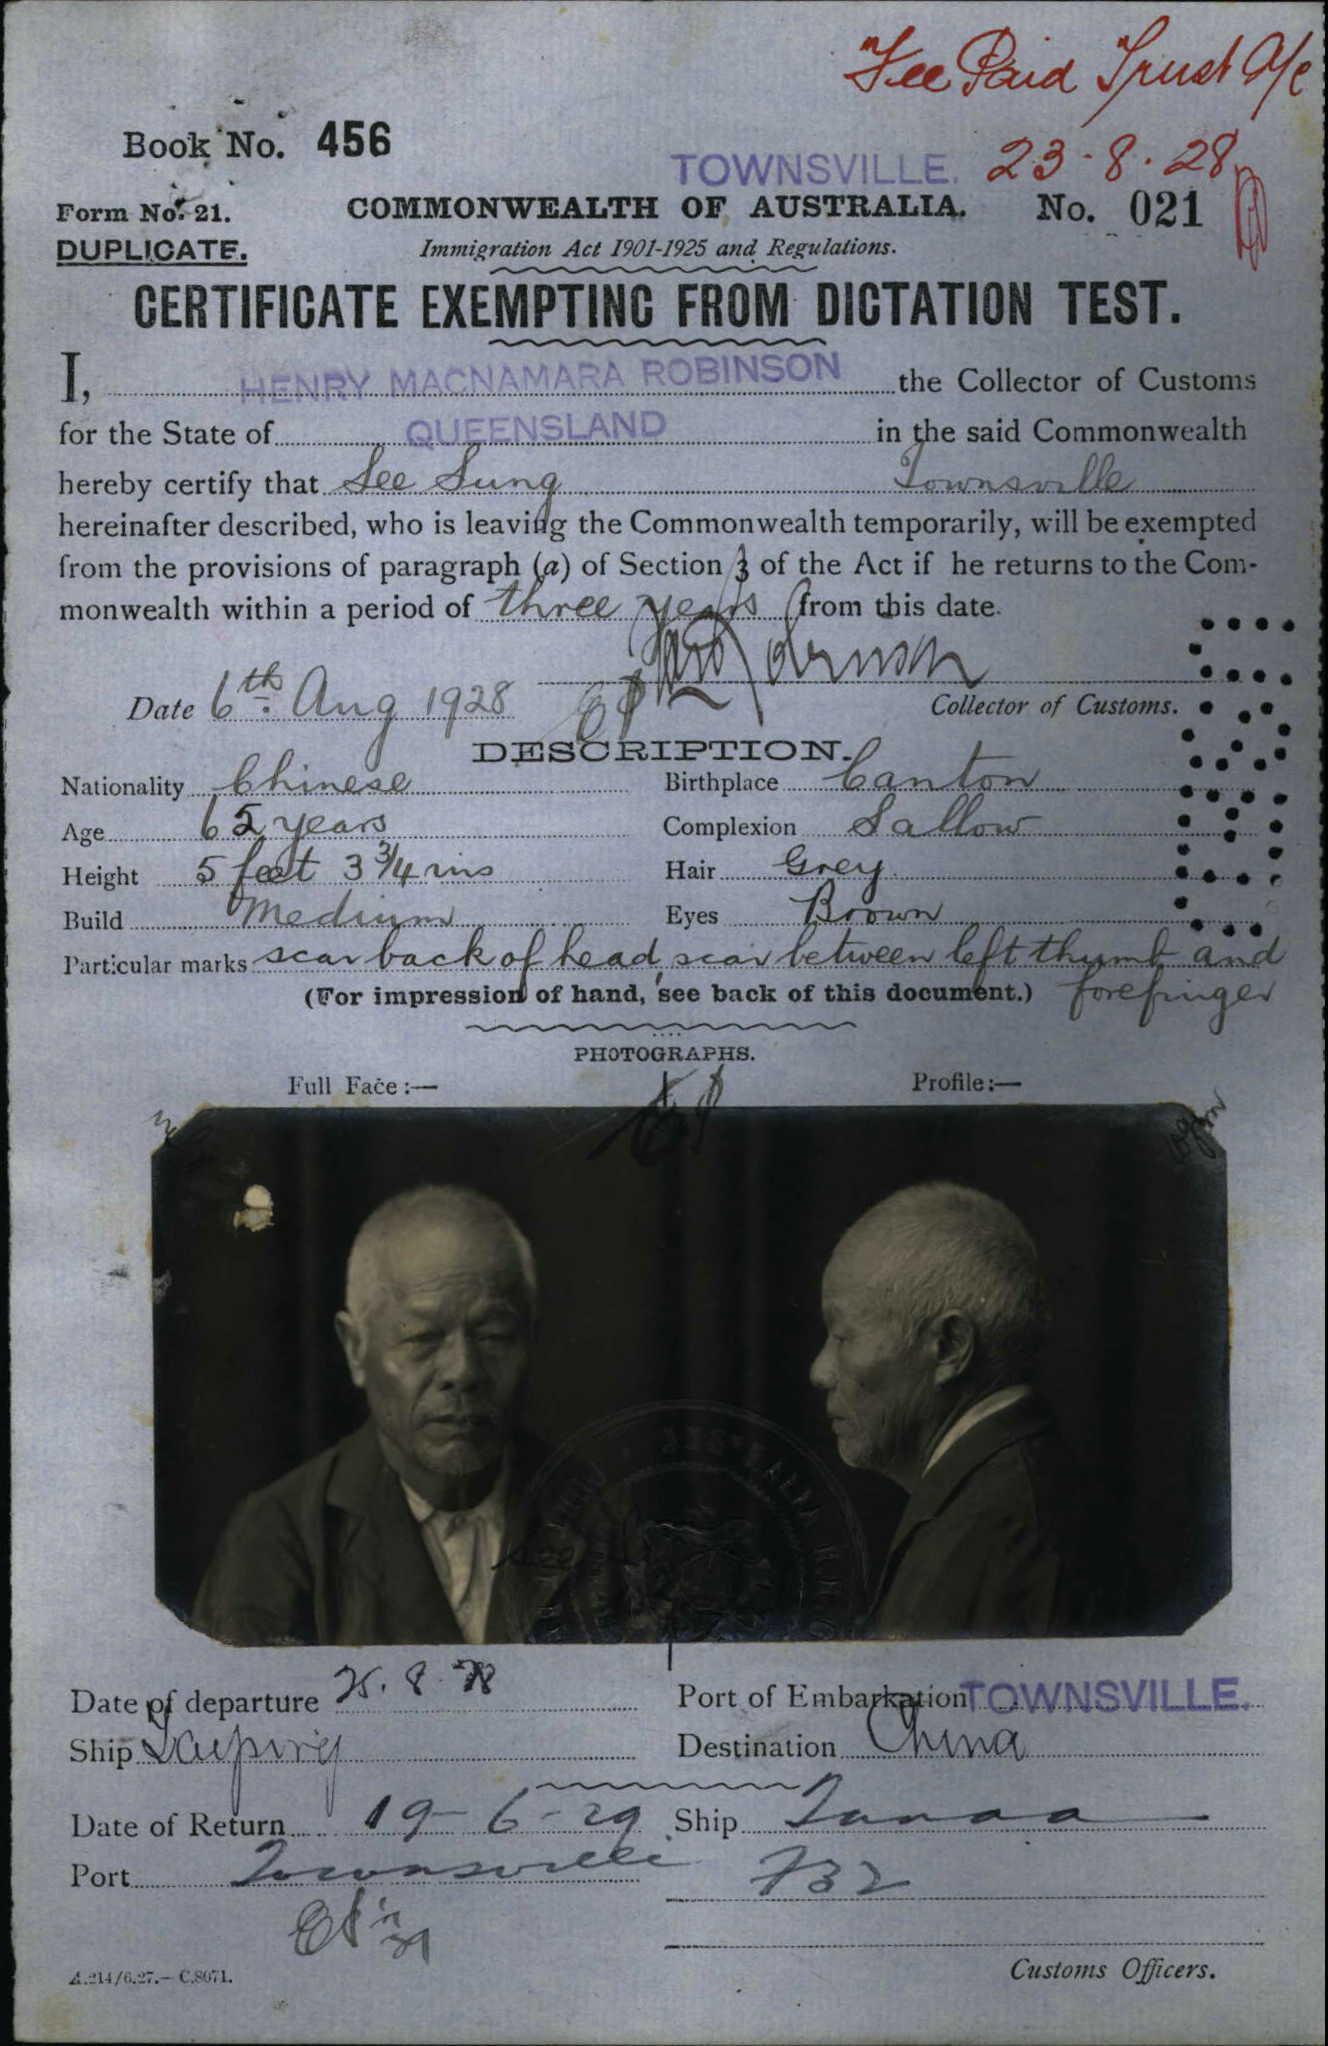 Fee Paid Trust A/c
Book No. 456
TOWNSVILLE. 23-8-28
Form No. 21.
COMMONWEALTH OF AUSTRALIA. No. 021
DUPLICATE.
Immigration Act 1901-1925 and Regulations.
CERTIFICATE EXEMPTING FROM DICTATION TEST.
I, HENRY MACNAMARA ROBINSON the Collector of Customs
for the State of QUEENSLAND in the said Commonwealth
hereby certify that See Sung Townsville
hereinafter described, who is leaving the Commonwealth temporarily, will be exempted
from the provisions of paragraph (a) of Section 3 of the Act if he returns to the Com-
monwealth within a period of three years from this date.
Date 6th Aug 1928 Collector of Customs.
DESCRIPTION.
Nationality Chinese Birthplace Canton
Age 65 years Complexion Sallow
Height 5 feet 3 3/4 ins Hair Grey
Build Medium Eyes Brown
Particular marks scar back of head, scar between left thumb and
(For impression of hand, see back of this document.) forefinger
PHOTOGRAPHS.
Full Face:— Profile:—
Date of departure 25.8.28 Port of Embarkation TOWNSVILLE.
Ship Taiping Destination China
Date of Return 19-6-29 Ship Tanda
Port Townsville 732
A.214/6.27.—C.8671. Customs Officers.